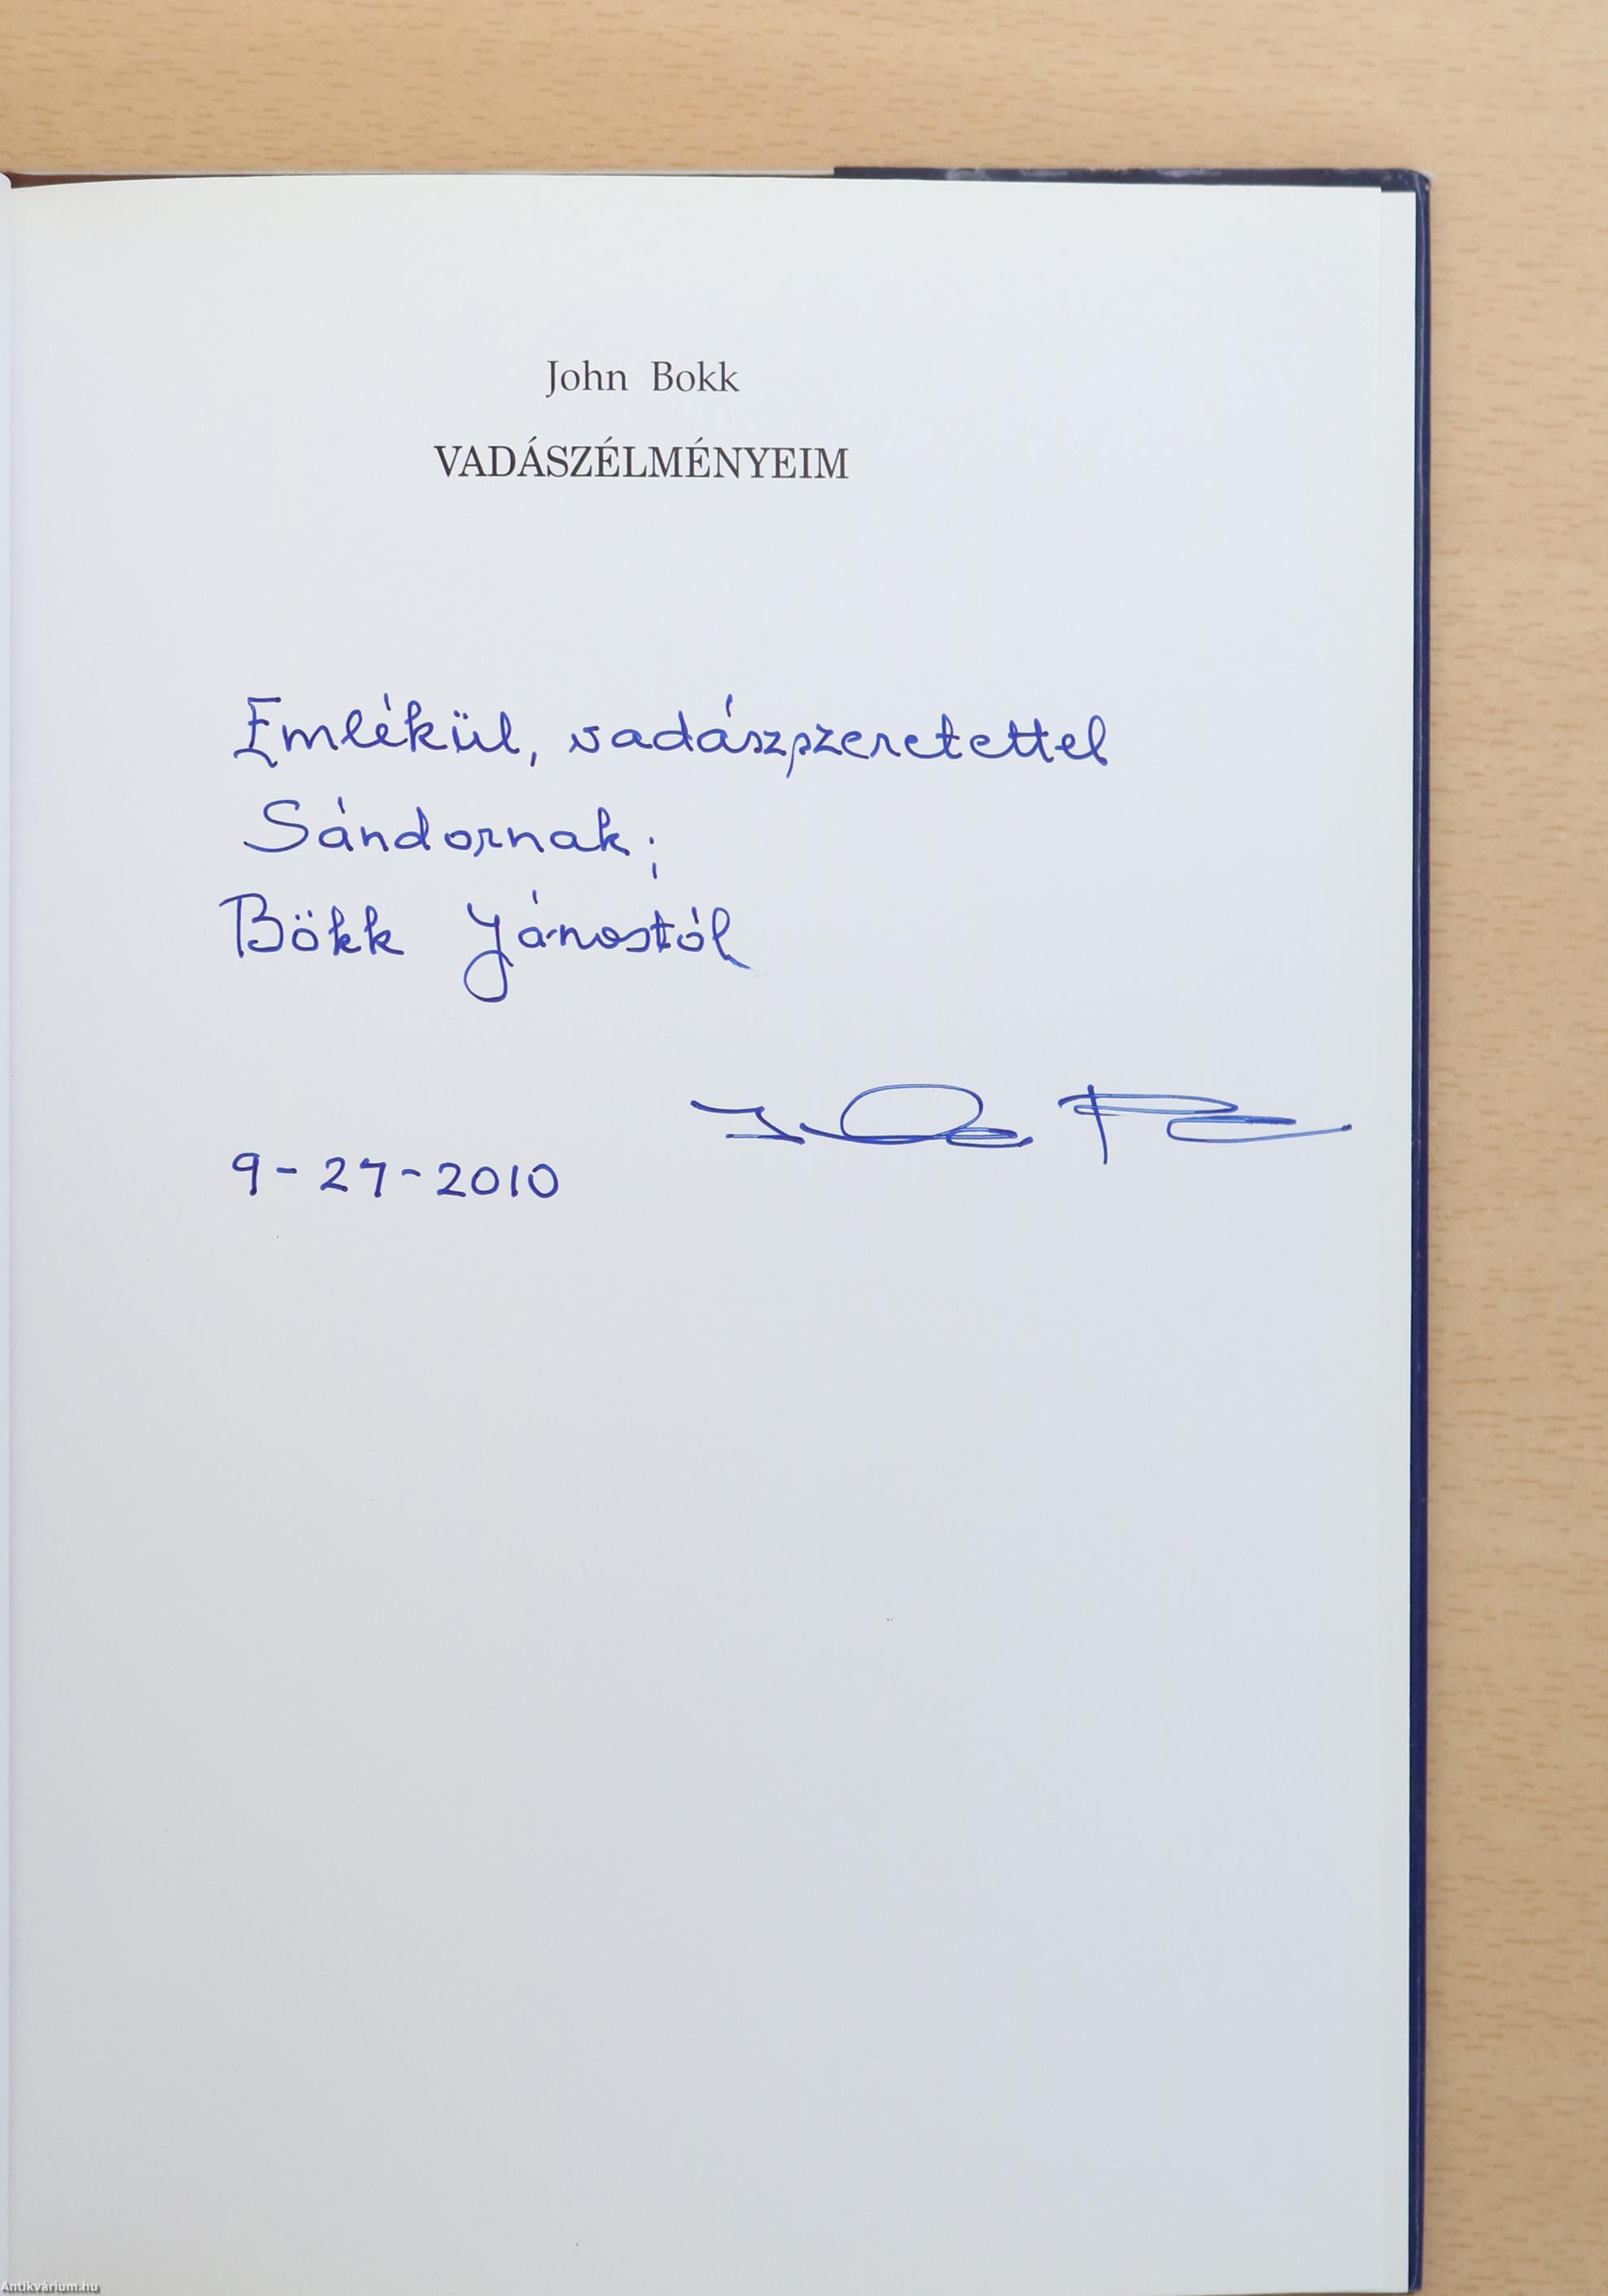 John Bokk
VADÁSZÉLMÉNYEIM
Emlékül, vadászszeretettel
Sándornak;
Bökk Jánostól
9-27-2010
Antikvárium.hu